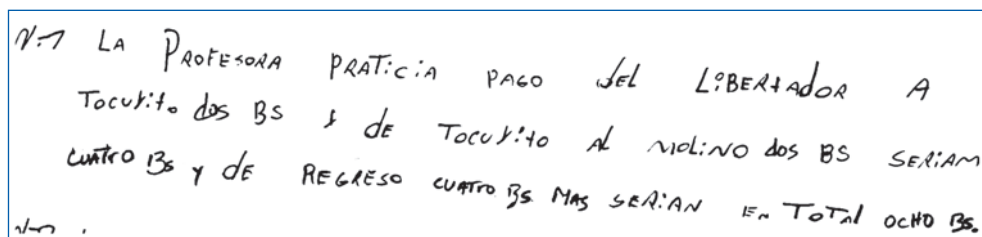 N-1 LA PROFESORA PRATiCiA PAGO dEL LiBERtAdOR A
TOCUYito dos BS Y dE TOCUYitO Al MOLiNO dos BS SERiAM
CUAtRO Bs y dE REGRESO CUATRO Bs MAS SERiAN EN TOTAl OCHO Bs.